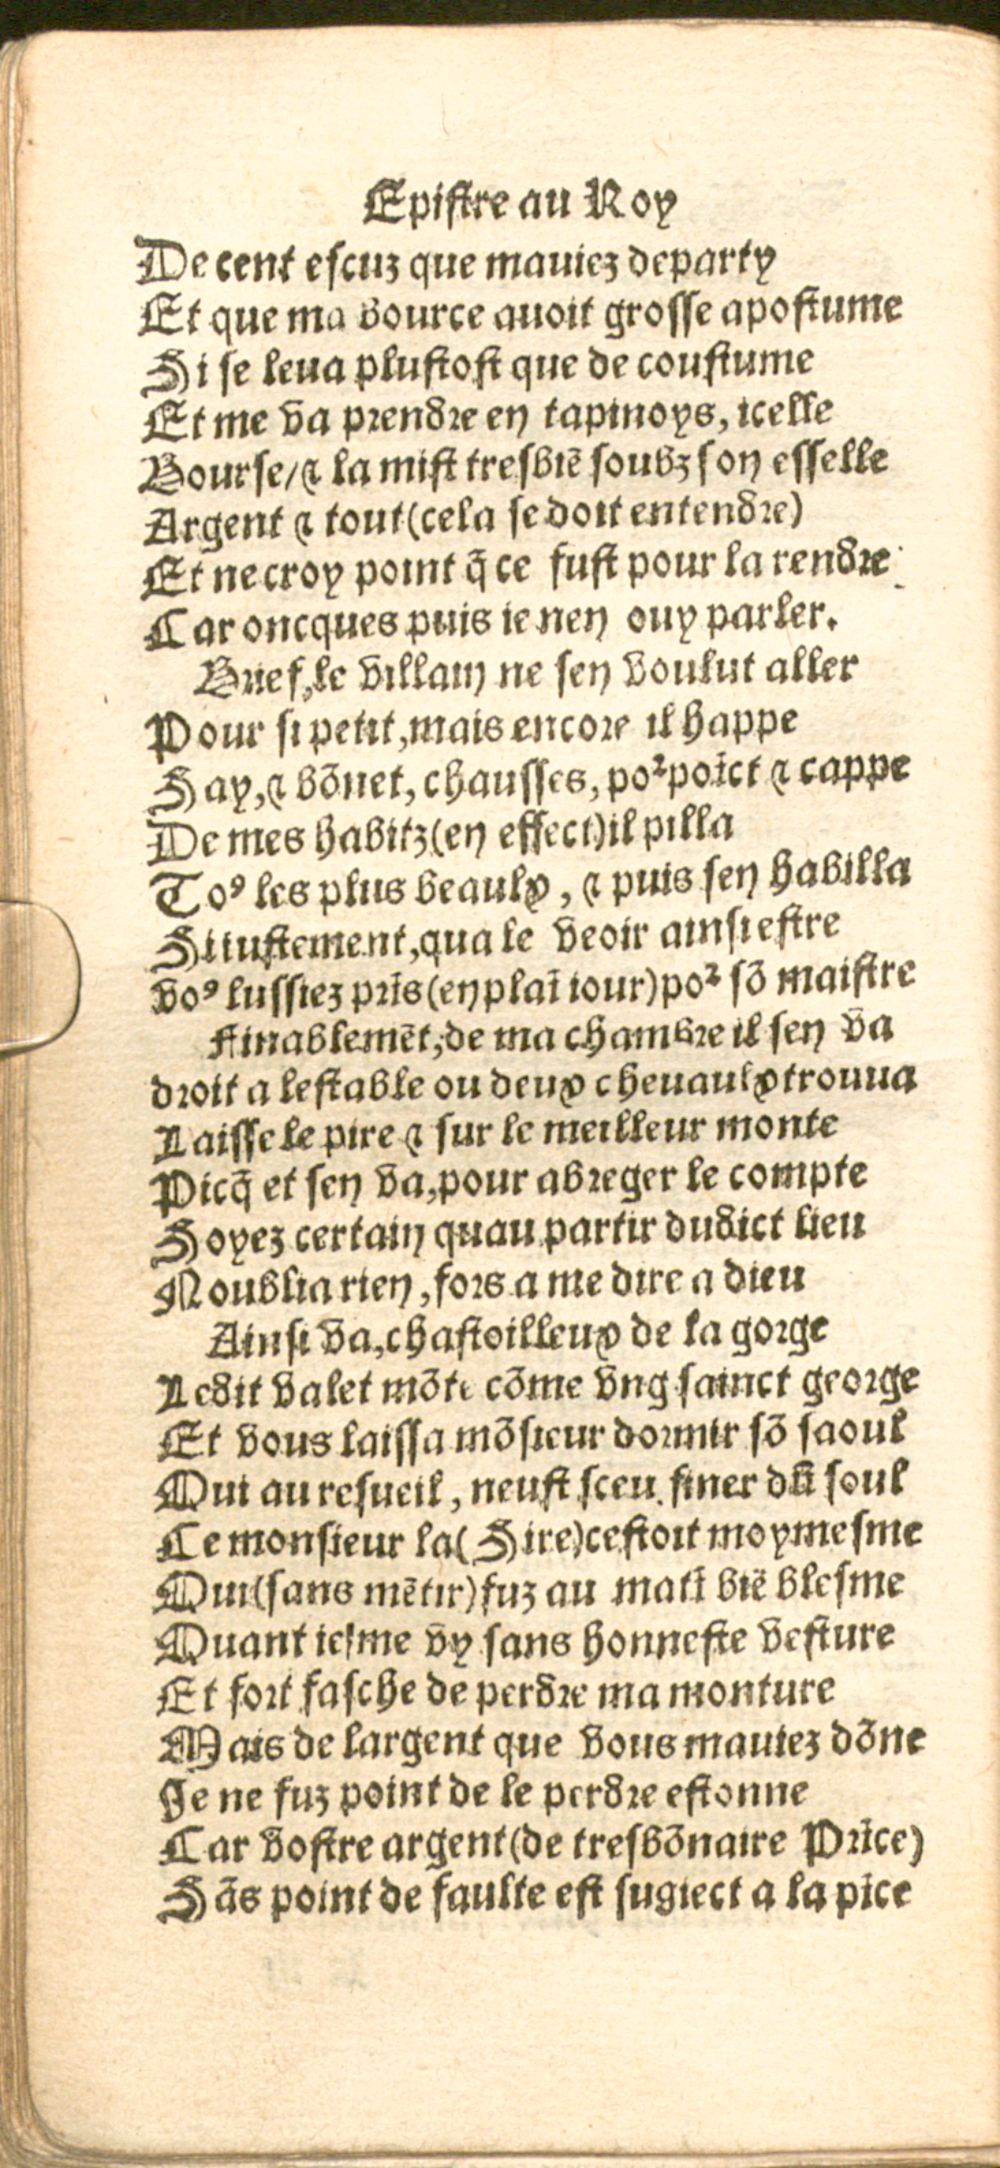 Epistre au Roy
De cent escuz que mauiez departy
Et que ma bource auoit grosse apostume
Si se leua plustost que de coustume
Et me va prendre en tapinoys, icelle
Bourse/⁊ la mist tresbiē soubz son esselle
Argent ⁊ tout (cela se doit entendre)
Et ne croy point q̄ ce fust pour la rendre
Car oncques puis ie nen ouy parler.
Brief, le villain ne sen voulut aller
Pour si petit, mais encore il happe
Say, ⁊ bōnet, chausses, poꝛpoīct ⁊ cappe
De mes habitz (en effect) il pilla
Toꝰ les plus beaulx, ⁊ puis sen habilla
Si iustement, qua le veoir ainsi estre
voꝰ lussiez prīs (en plaī iour) poꝛ sō maistre
Finablemēt, de ma chambre il sen va
droit a lestable ou deux cheuaulx trouua
Laisse le pire ⁊ sur le meilleur monte
Picq̄ et sen va, pour abreger le compte
Soyez certain quau partir dudict lieu
Noublia rien, fors a me dire a dieu
Ainsi va, chastoilleux de la gorge
Ledit valet mōte cōme vng sainct george
Et vous laissa mōsieur dormir sō saoul
Qui au resueil, neust sceu finer dū soul
Ce monsieur la (Sire) cestoit moymesme
Qui (sans mētir) fuz au matī biē blesme
Quant ie me vy sans honneste vesture
Et fort fasche de perdre ma monture
Mais de largent que vous mauiez dōne
Je ne fuz point de le perdre estonne
Car vostre argent (de tresbōnaire Prīce)
Sās point de faulte est sugiect a la pīce